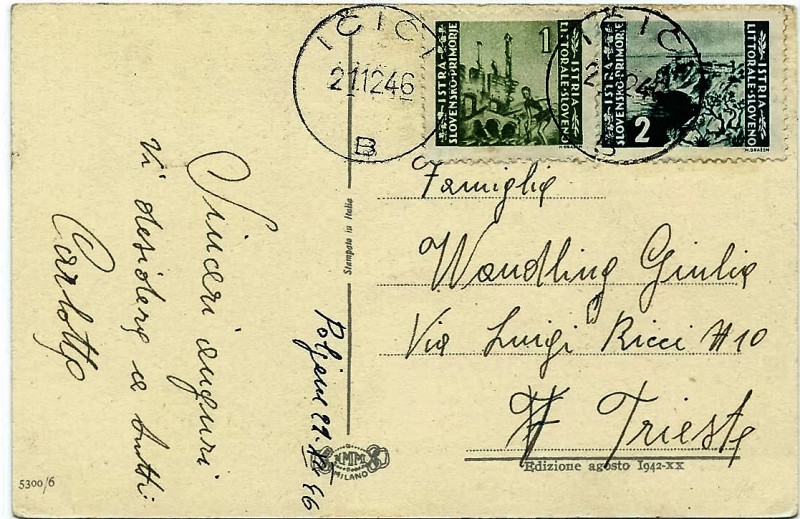 IČIĆI
21.12.46
B
1
ISTRA
SLOVENSKO PRIMORJE
ISTRIA
LITTORALE SLOVENO
IČIĆI
2
ISTRA
SLOVENSKO-PRIMORJE
ISTRIA
LITTORALE SLOVENO
Sinceri auguri
Vi desidera a tutti
Carlotta
Poljane 21·XII 46
Stampato in Italia
Famiglia
Wandling Giulia
Via Luigi Ricci # 10
Trieste
NMM
MILANO
5300/6
Edizione agosto 1942-XX